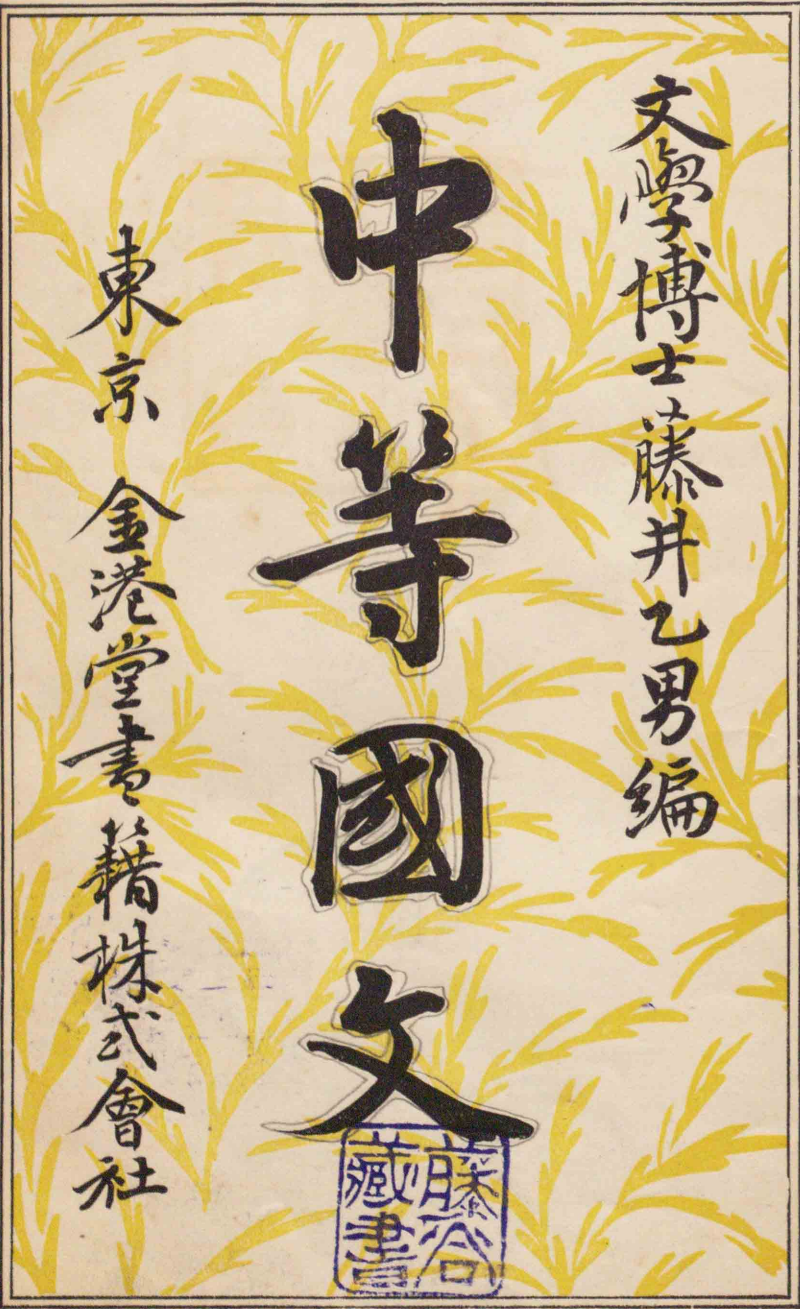 文學博士藤井乙男編
中等國文
東京 金港堂書籍株式會社
藤谷
藏書